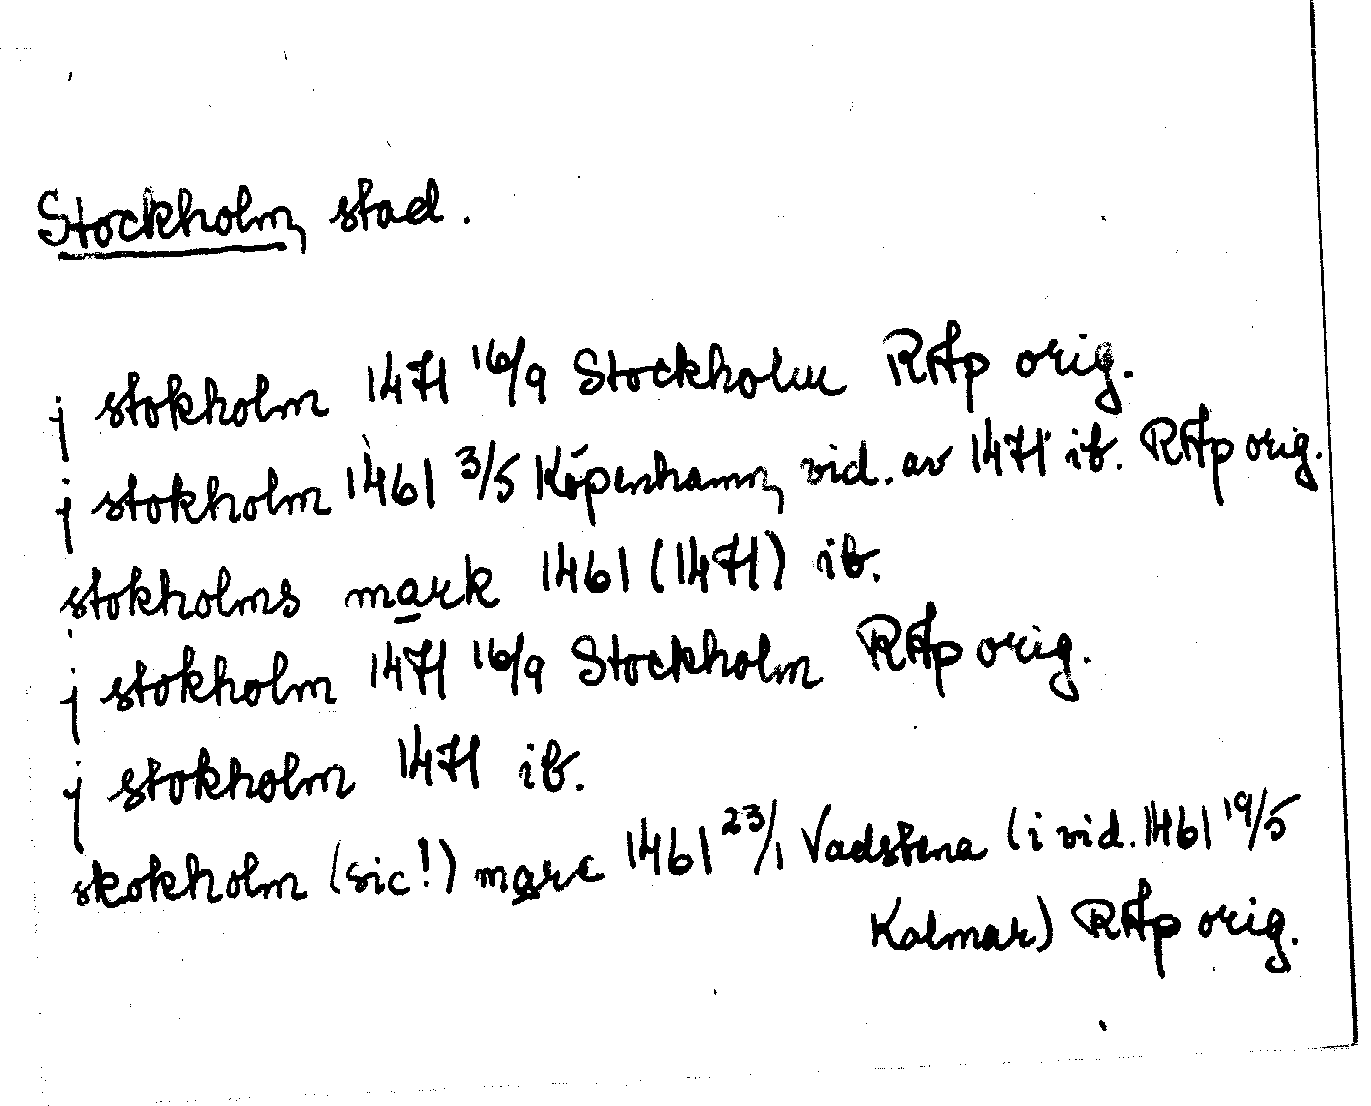 Stockholm, stad.
j stokholm 1471 16/9 Stockholm RAp orig.
j stokholm 1461 3/5 Köpenhamn, vid. av 1471 ib. RAp orig.
stokholms mark 1461 (1471) ib.
j stokholm 1471 16/9 Stockholm RAp orig.
j stokholm 1471 ib.
skokholm (sic!) marc 1461 23/1 Vadstena (i vid. 1461 19/5
Kalmar) RAp orig.